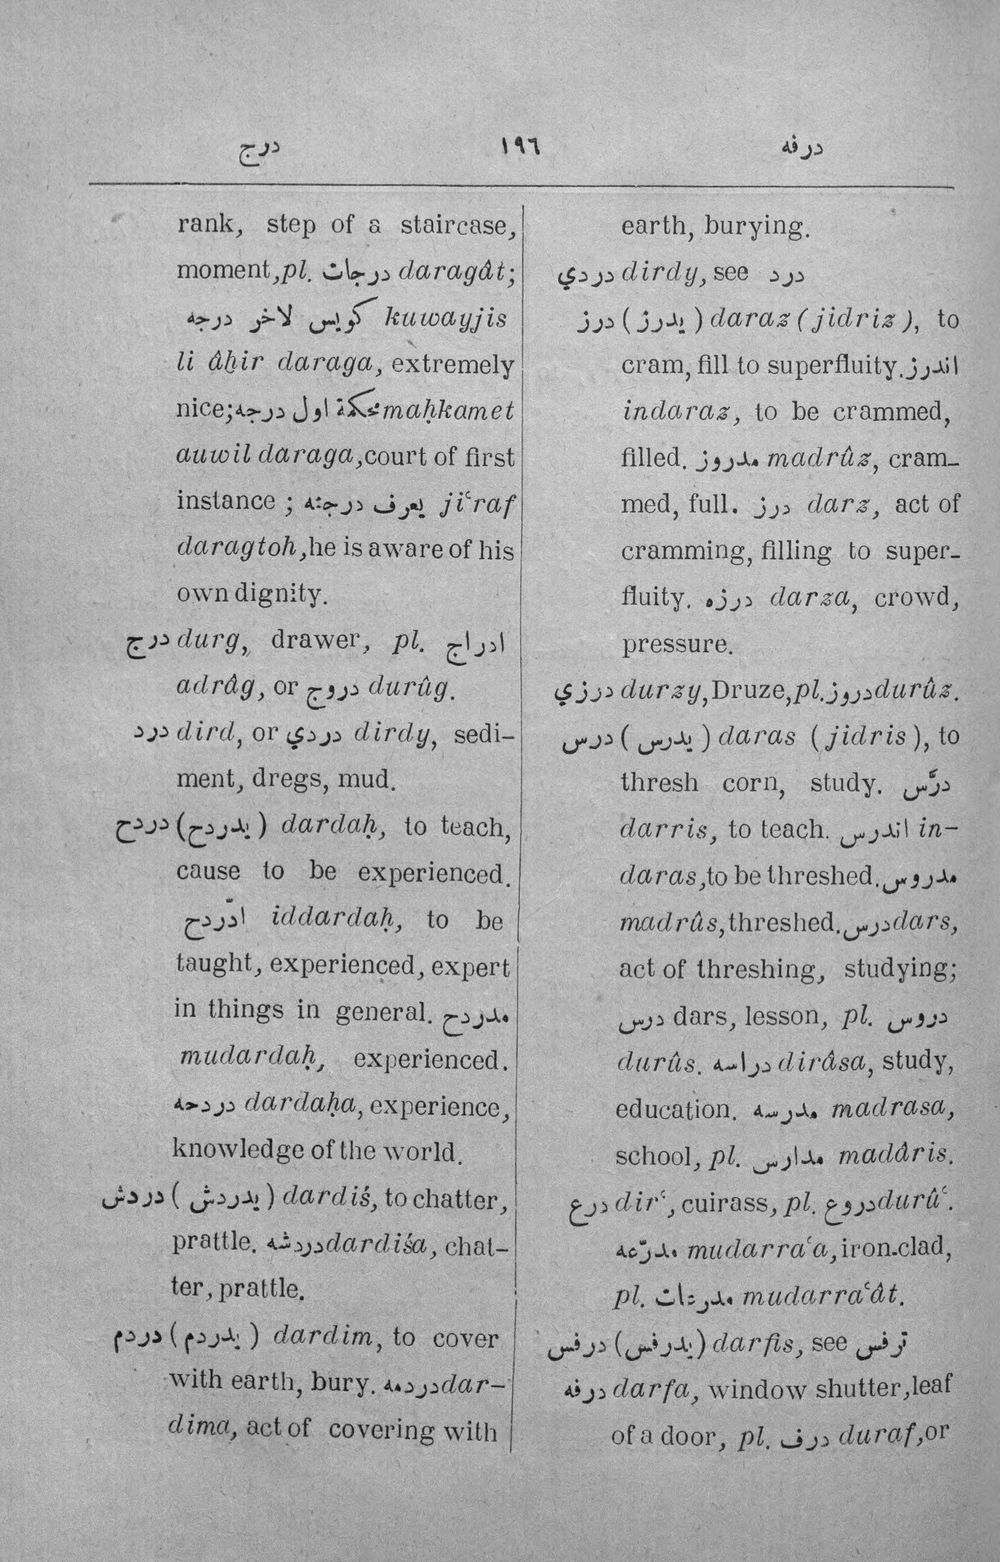 درج ١٩٦ درفه
rank, step of a staircase,
moment, pl. درجات daragât;
كويس لاخر درجه kuwayjis
li âḫir daraga, extremely
nice; محكمة اول درجه maḥkamet
auwil daraga, court of first
instance ; يعرف درجته ji‘raf
daragtoh, he is aware of his
own dignity.
درج durg, drawer, pl. ادراج
adrâg, or دروج durûg.
درد dird, or دردي dirdy, sedi-
ment, dregs, mud.
دردح (يدردح) dardaḥ, to teach,
cause to be experienced.
ادّردح iddardaḥ, to be
taught, experienced, expert
in things in general. مدردح
mudardaḥ, experienced.
دردحه dardaḥa, experience,
knowledge of the world.
دردش (يدردش) dardiś, to chatter,
prattle. دردشه dardiśa, chat-
ter, prattle.
دردم (يدردم) dardim, to cover
with earth, bury. دردمه dar-
dima, act of covering with
earth, burying.
دردي dirdy, see درد
درز (يدرز) daraz (jidriz), to
cram, fill to superfluity. اندرز
indaraz, to be crammed,
filled. مدروز madrûz, cram-
med, full. درز darz, act of
cramming, filling to super-
fluity. درزه darza, crowd,
pressure.
درزي durzy, Druze, pl. دروز durûz.
درس (يدرس) daras (jidris), to
thresh corn, study. درّس
darris, to teach. اندرس in-
daras, to be threshed. مدروس
madrûs, threshed. درس dars,
act of threshing, studying;
درس dars, lesson, pl. دروس
durûs. دراسه dirâsa, study,
education. مدرسه madrasa,
school, pl. مدارس madâris.
درع dir‘, cuirass, pl. دروع durû‘.
مدرّعه mudarra‘a, iron-clad,
pl. مدرعات mudarra‘ât.
درفس (يدرفس) darfis, see ترفس
درفه darfa, window shutter, leaf
of a door, pl. درف duraf, or